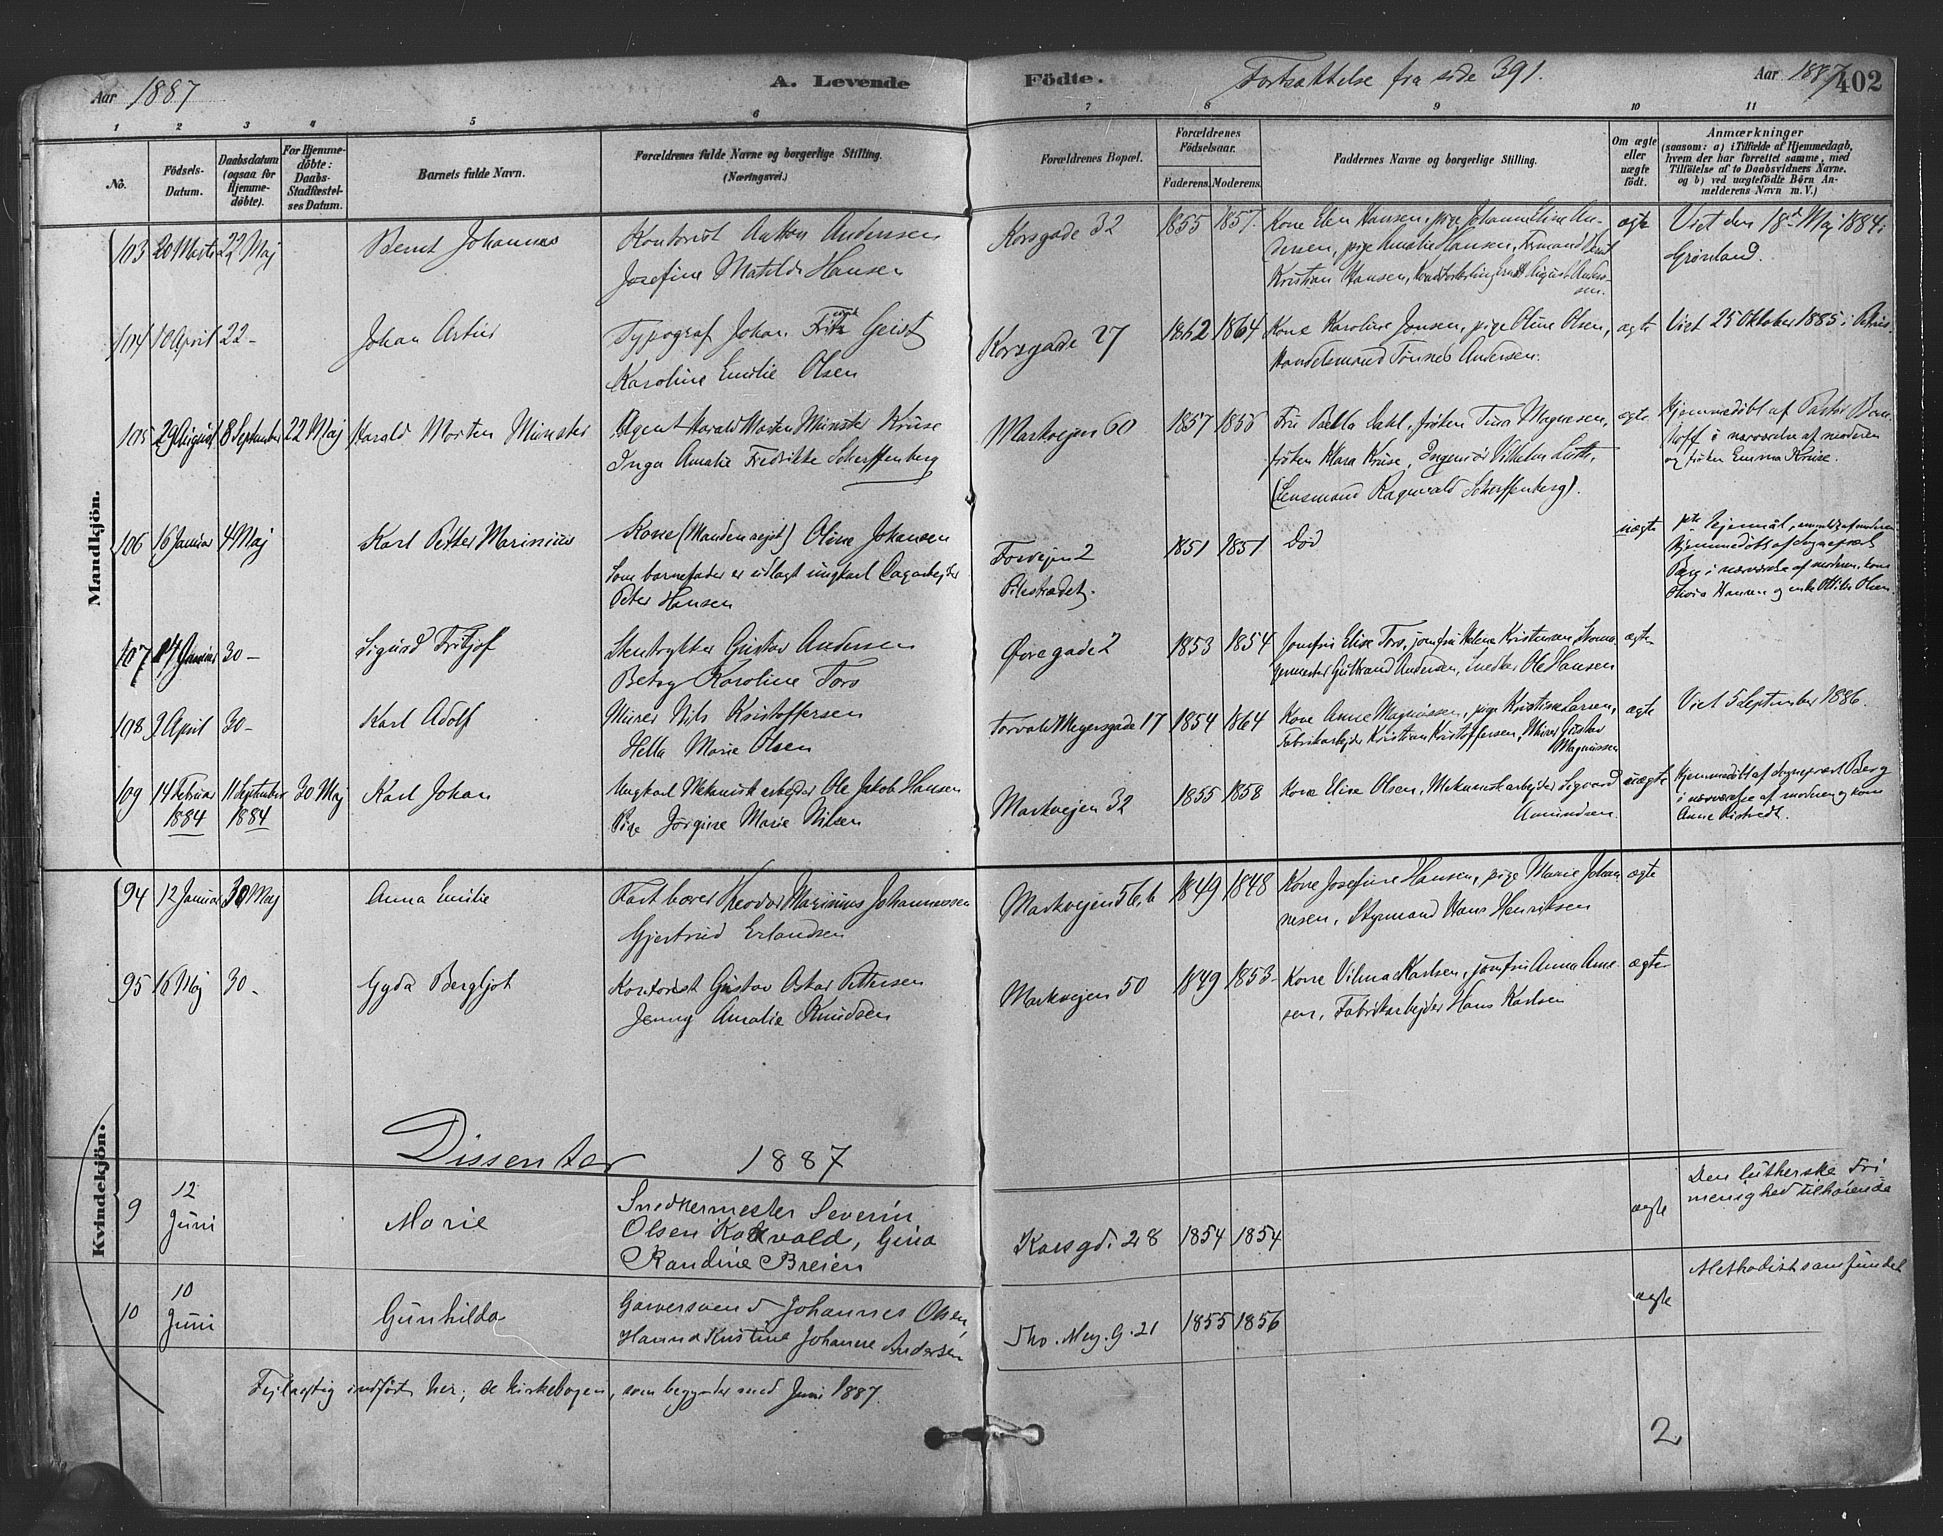 Aar 1887
A. Levende
Födte.
Fortsættelse fra side 391.
Aar 1887
402
1 2 3 4 5 6 7 8 9 10 11
No.
Födsels-Datum.
Daabsdatum (ogsaa for Hjemme-döbte).
For Hjemme-döbte: Daabs-Stadfæstel-ses Datum.
Barnets fulde Navn.
Forældrenes fulde Navne og borgerlige Stilling. (Næringsvei.)
Forældrenes Bopæl.
Forældrenes Födselsaar.
Faderens. Moderens.
Faddernes Navne og borgerlige Stilling.
Om ægte eller uægte födt.
Anmærkninger
(saasom: a) i Tilfælde af Hjemmedaab, hvem der har forrettet samme, med Tilföielse af to Daabsvidners Navne. og b) ved uægtefödte Börn An-melderens Navn m. V.)
Mandkjön.
103 20 Marts 22 Maj Bernt Johannes Kontorist Anton Andersen Korsgade 32 1855 1857. Kone Elen Hansen, pige Johanne Elise An- ægte Viet den 18d Maj 1884 i
Josefine Matilde Hansen dersen, pige Amalie Hansen, Formand Bernt Grønland.
Kristian Hansen, August Ander-
sen.
104 10 April 22 - Johan Artur Typograf Johan Geist Korsgade 27 1862 1864 Kone Karoline Jonsen, pige Oline Olsen, ægte Viet 25 Oktober 1885 i
Karoline Emilie Olsen Handelsmand Tønnes Andersen.
105 29 August 8 September 22 Maj Harald Morten Münster Agent Harald Morten Münster Kruse Markvejen 60 1857 1856 Fru Dahl, frøken Tina Magnesen, ægte Hjemmedøbt af Pastor
Inga Amalie Fredrikke Scherffenberg frøken Klara Kruse, Ingeniør Vilhelm i nærværelse af moderen
(Lensmand Ragnvald Scherffenberg). og frøken Emma Kruse.
106 16 Januar 4 Maj Karl Petter Marinius Kone (Manden rejst) Oline Johansen Fossvejen 2 1851 1851 Død uægte
Som barnefader er udlagt ungkarl Dagarbejder Pilestrædet. Hjemmedøbt af Sogneprest
Peter Hansen Berg i nærværelse af moderen, kone
Hansen og enke Olsen.
107 14 Januar 30 - Sigurd Fritjof Stentrykker Gustav Andersen Øvregade 2 1853 1854 Jomfru Elise Toro, jomfru Helene Kristensen ægte
Betsy Karoline Toro Gulbrand Andersen, Snedker Ole Hansen
108 9 April 30 - Karl Adolf Murer Nils Kristoffersen Torvald Meyersgade 17 1854 1864 Kone Anne Magnussen, pige Kristine Larsen, ægte Viet 5 September 1886.
Hella Marie Olsen Fabrikarbejder Kristian Kristoffersen, Murer Gustav
Magnussen
109 14 Februar 11 September 30 Maj Karl Johan Ungkarl Mekanisk arbejder Ole Jakob Hansen Markvejen 32 1855 1858 Kone Elise Olsen, Mekanisk arbejder Sigvard uægte Hjemmedøbt af Sogneprest Berg
1884 1884 Pige Jørgine Marie Nilsen Amundsen. i nærværelse af moderen og kone
Anne
Kvindekjön.
94 12 Januar 30 Maj Anna Emilie Theodor Marinius Johannessen Markvejen 56,b 1849 1848 Kone Josefine Hansen, pige Marie Johan- ægte
Gjertrud Erlandsen nesen, Styrmand Hans Henriksen
95 16 Maj 30 - Gyda Bergljot Kontorist Gustav Oskar Pettersen Markvejen 50 1849 1853 Kone Vilma Karlsen, jomfru Anna Ame- ægte
Jenny Amalie Knudsen sen, Fabrikarbejder Hans Karlsen
Dissenter 1887
9 12 Juni Marie Snedkermester Severin Korsgd. 28 1854 1854 ægte Den lutherske Fri
Olsen Kokvold, Gina menighed tilhørende
Randine Breien
10 10 Juni Gunhilda Garversvend Johannes Olsen, Tho. Mey. G. 21 1855 1856 ægte Methodistsamfundet
Hanna Kristine Johanne Andersen
Fejlagtig indført her; se kirkebogen, som begynder med Juni 1887.
2